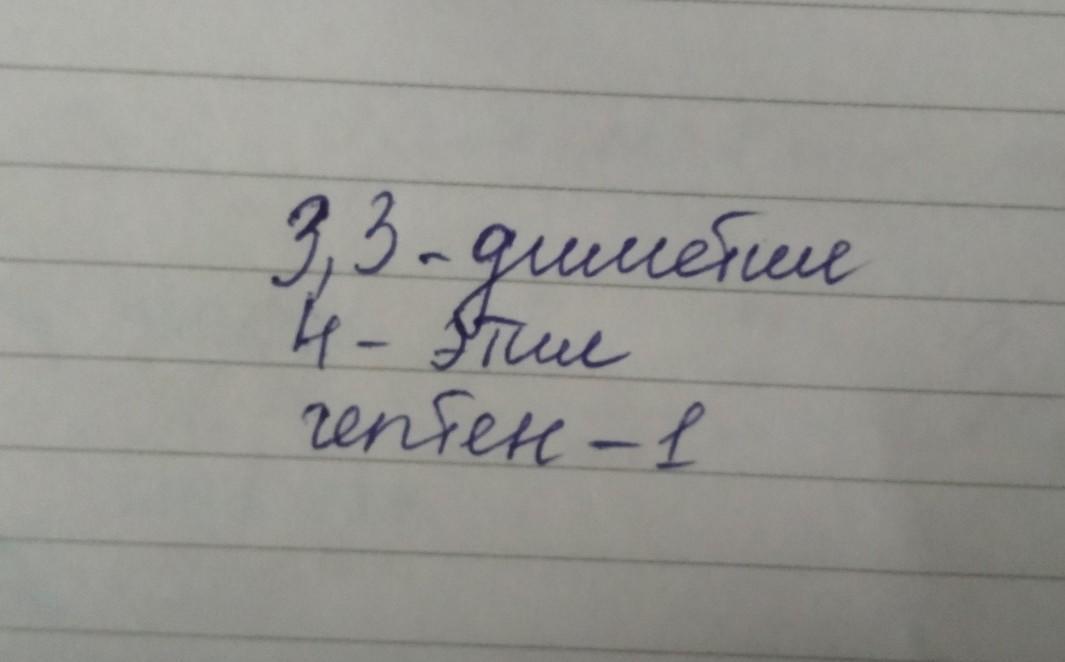 3,3-диметил
4- этил
гептен-1